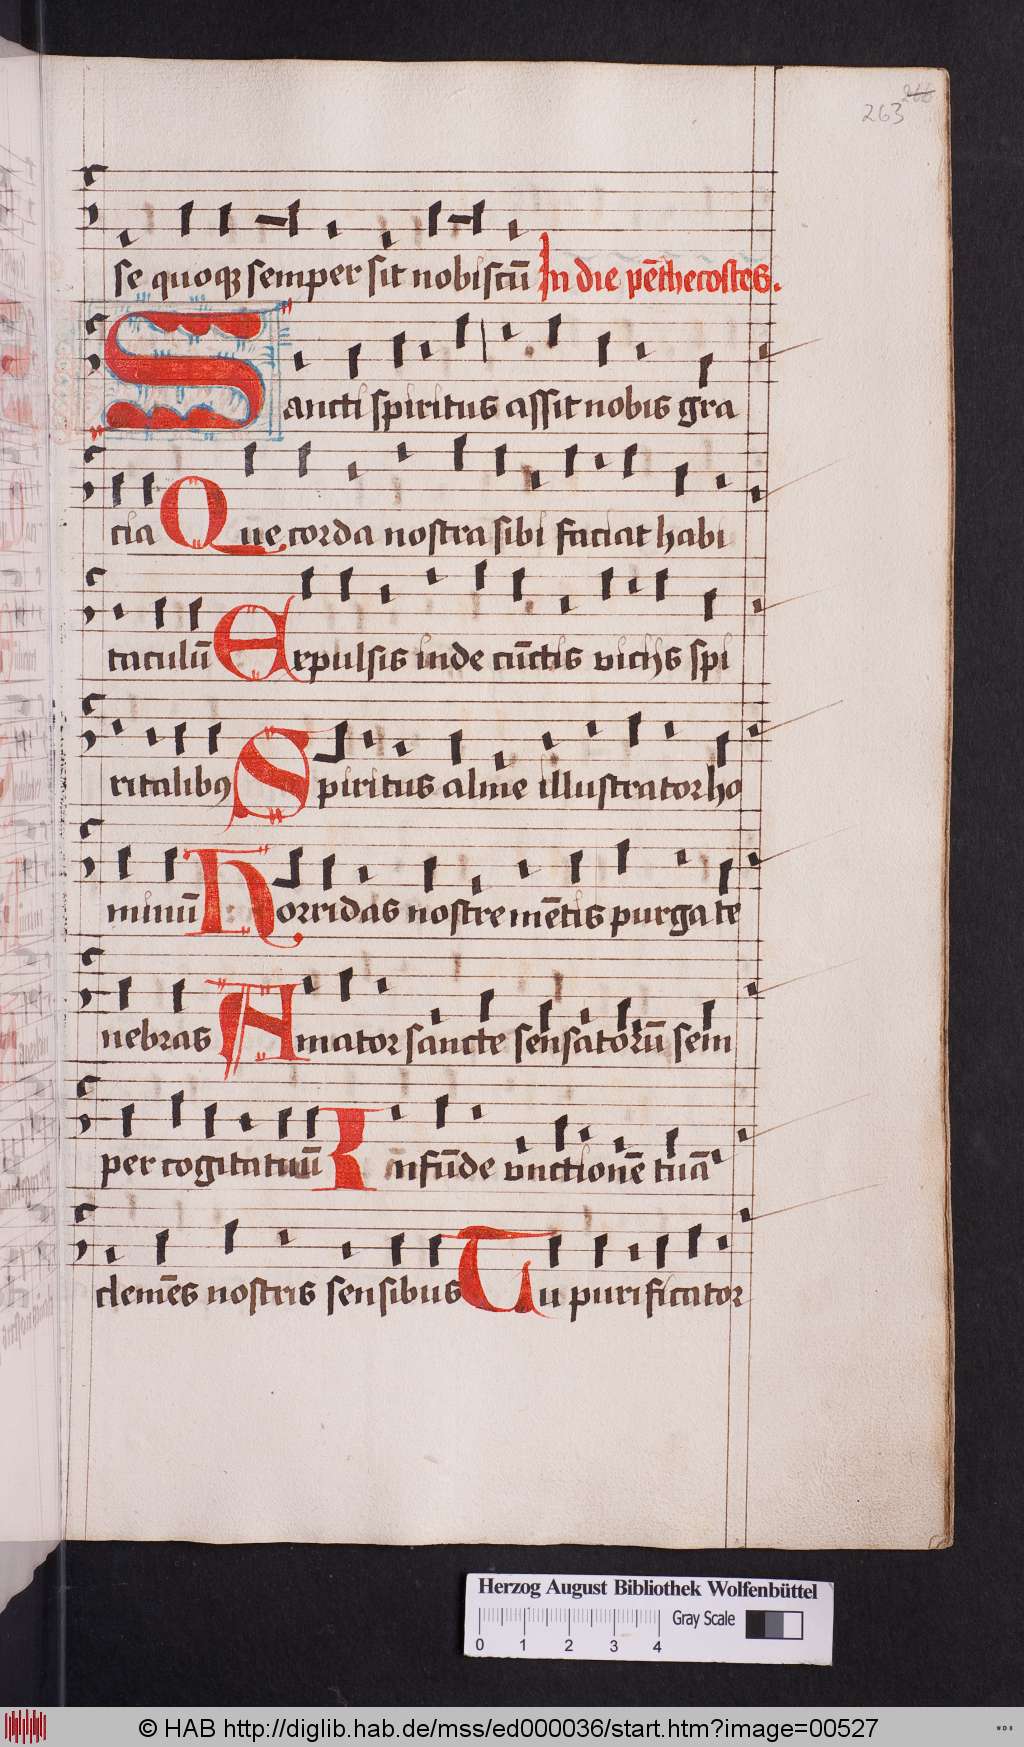 266
263
se quoqꝫ semper sit nobiscū In die pēthecostes.
Sancti spiritus assit nobis gra
cia Que corda nostra sibi faciat habi
taculū Expulsis inde cūctis vicijs spi
ritalibꝰ Spiritus alme illustrator ho
minū Horridas nostre mētis purga te
nebras Amator sancte sensatorū sem
per cogitatuū Infūde vnctionē tuā
clemēs nostris sensibus Tu purificator
Herzog August Bibliothek Wolfenbüttel
Gray Scale
0 1 2 3 4
© HAB http://diglib.hab.de/mss/ed000036/start.htm?image=00527